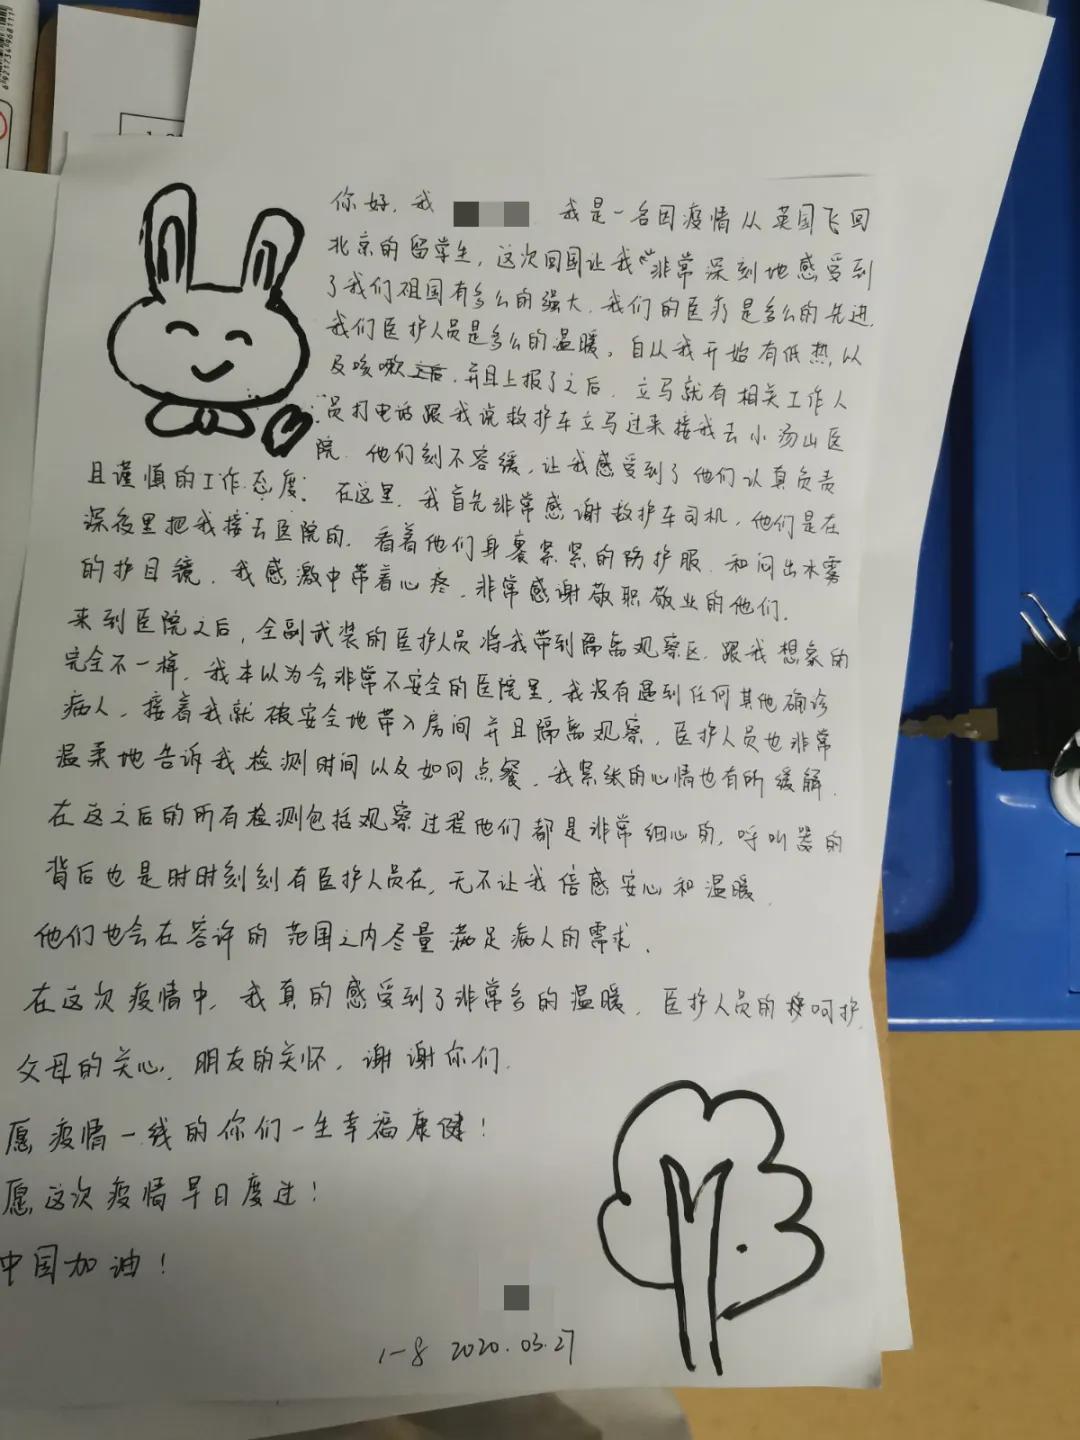 6921734968111
你好，我 我是一名因疫情从英国飞回
北京的留学生，这次回国让我非常深刻地感受到
了我们祖国有多么的强大，我们的医疗是多么的先进，
我们医护人员是多么的温暖。自从我开始有低热，以
及咳嗽之后，并且上报了之后，立马就有相关工作人
员打电话跟我说救护车立马过来接我去小汤山医
院，他们刻不容缓，让我感受到了他们认真负责
且谨慎的工作态度。在这里，我首先非常感谢救护车司机，他们是在
深夜里把我接去医院的，看着他们身裹紧紧的防护服，和闷出水雾
的护目镜，我感激中带着心疼，非常感谢敬职敬业的他们。
来到医院之后，全副武装的医护人员将我带到隔离观察区，跟我想象的
完全不一样，我本以为会非常不安全的医院里，我没有遇到任何其他确诊
病人，接着我就被安全地带入房间并且隔离观察，医护人员也非常
温柔地告诉我检测时间以及如何点餐，我紧张的心情也有所缓解，
在这之后的所有检测包括观察过程他们都是非常细心的，呼叫器的
背后也是时时刻刻有医护人员在，无不让我倍感安心和温暖，
他们也会在容许的范围之内尽量满足病人的需求，
在这次疫情中，我真的感受到了非常多的温暖，医护人员的呵护，
父母的关心，朋友的关怀，谢谢你们，
愿疫情一线的你们一生幸福康健！
愿这次疫情早日度过！
中国加油！
1-8 2020.03.27